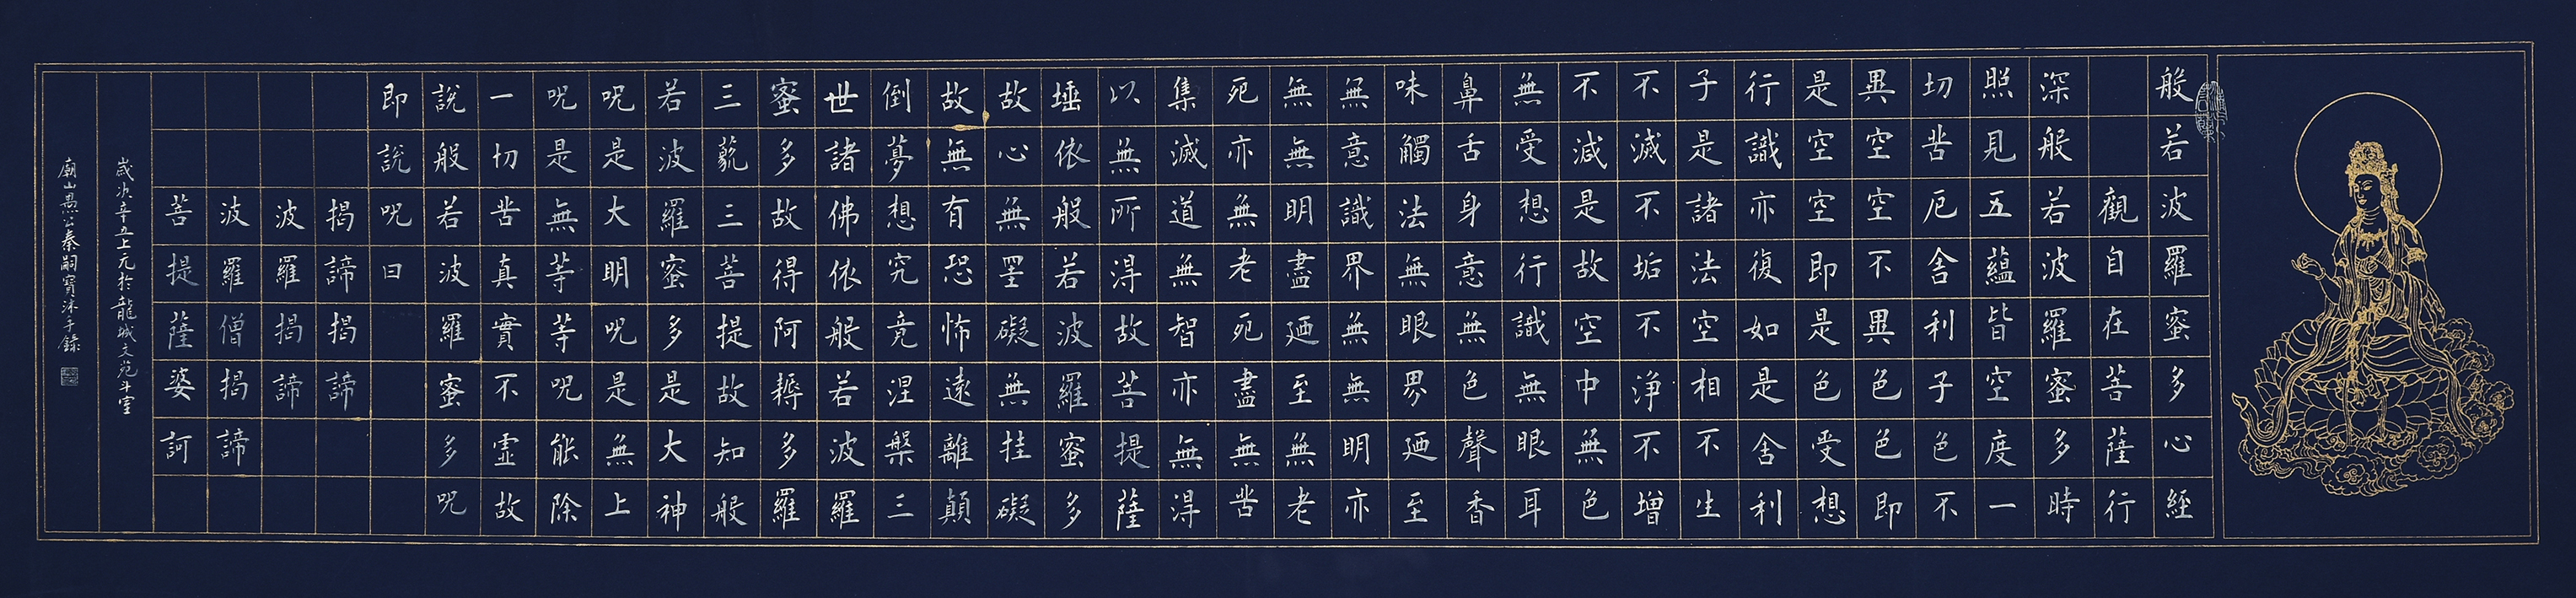 般若波羅蜜多心經
觀自在菩薩行
深般若波羅蜜多時
照見五蘊皆空度一
切苦厄舍利子色不
異空空不異色色即
是空空即是色受想
行識亦復如是舍利
子是諸法空相不生
不滅不垢不淨不增
不減是故空中無色
無受想行識無眼耳
鼻舌身意無色聲香
味觸法無眼界廼至
無意識界無無明亦
無無明盡廼至無老
死亦無老死盡無苦
集滅道無智亦無得
以無所得故菩提薩
埵依般若波羅蜜多
故心無罣礙無挂礙
故無有恐怖遠離顛
倒夢想究竟涅槃三
世諸佛依般若波羅
蜜多故得阿耨多羅
三藐三菩提故知般
若波羅蜜多是大神
呪是大明呪是無上
呪是無等等呪能除
一切苦真實不虛故
說般若波羅蜜多呪
即說呪曰
揭諦揭諦
波羅揭諦
波羅僧揭諦
菩提薩婆訶
歲次辛丑上元於龍城文苑斗室
廟山愚公秦嗣寶沐手錄